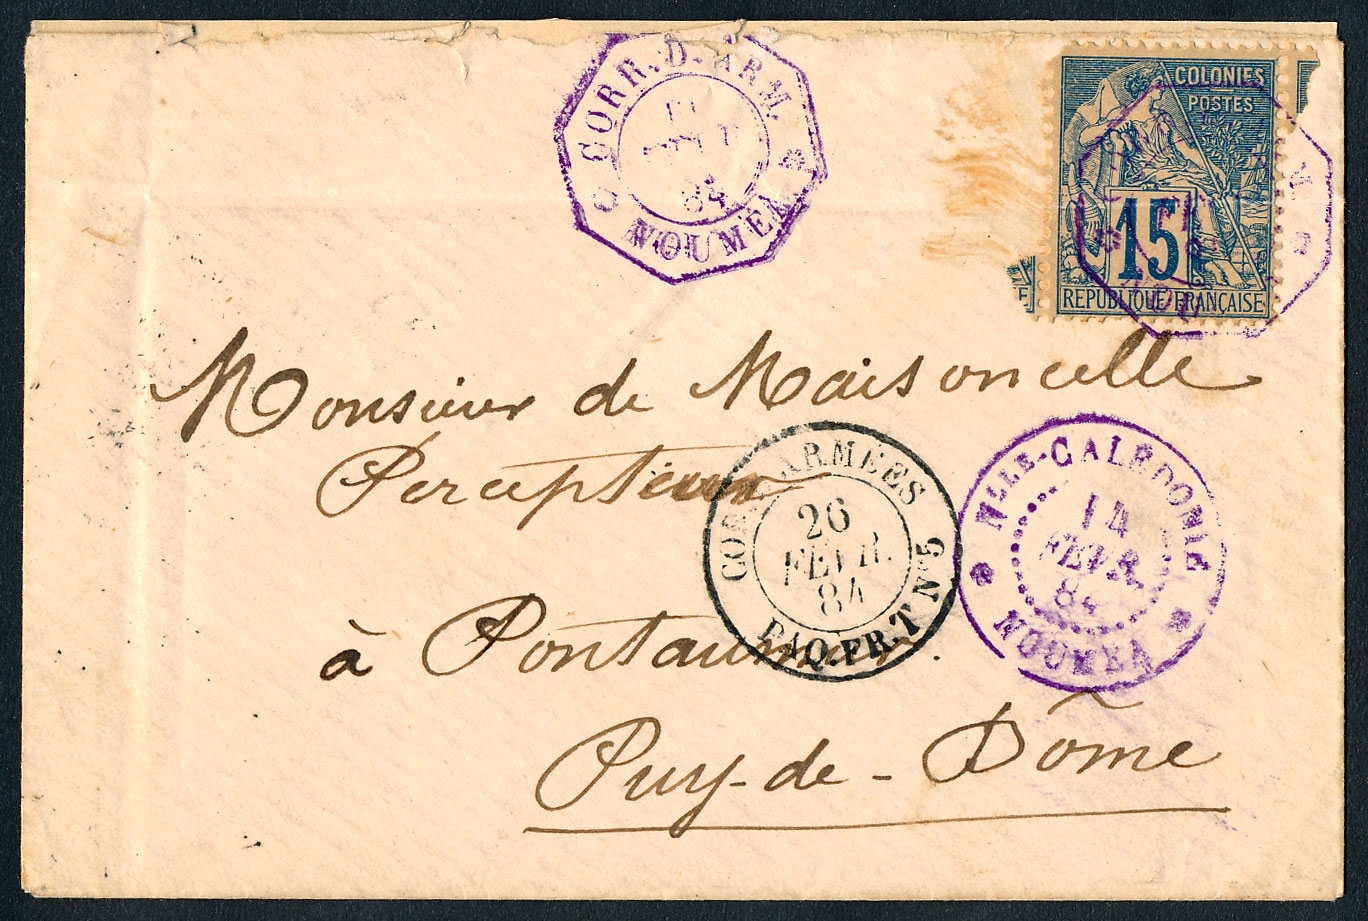 CORR. D. ARM.
84
NOUMEA
COLONIES
POSTES
15
REPUBLIQUE FRANÇAISE
E
Monsieur de Maisoncelle
Percepteur
à Pontaumur.
Puy-de-Dôme
CORR. ARMEES
26
FEVR.
84
PAQ.FR.T Nº5
NLLE-CALEDONIE
14
FEVR.
84
NOUMEA